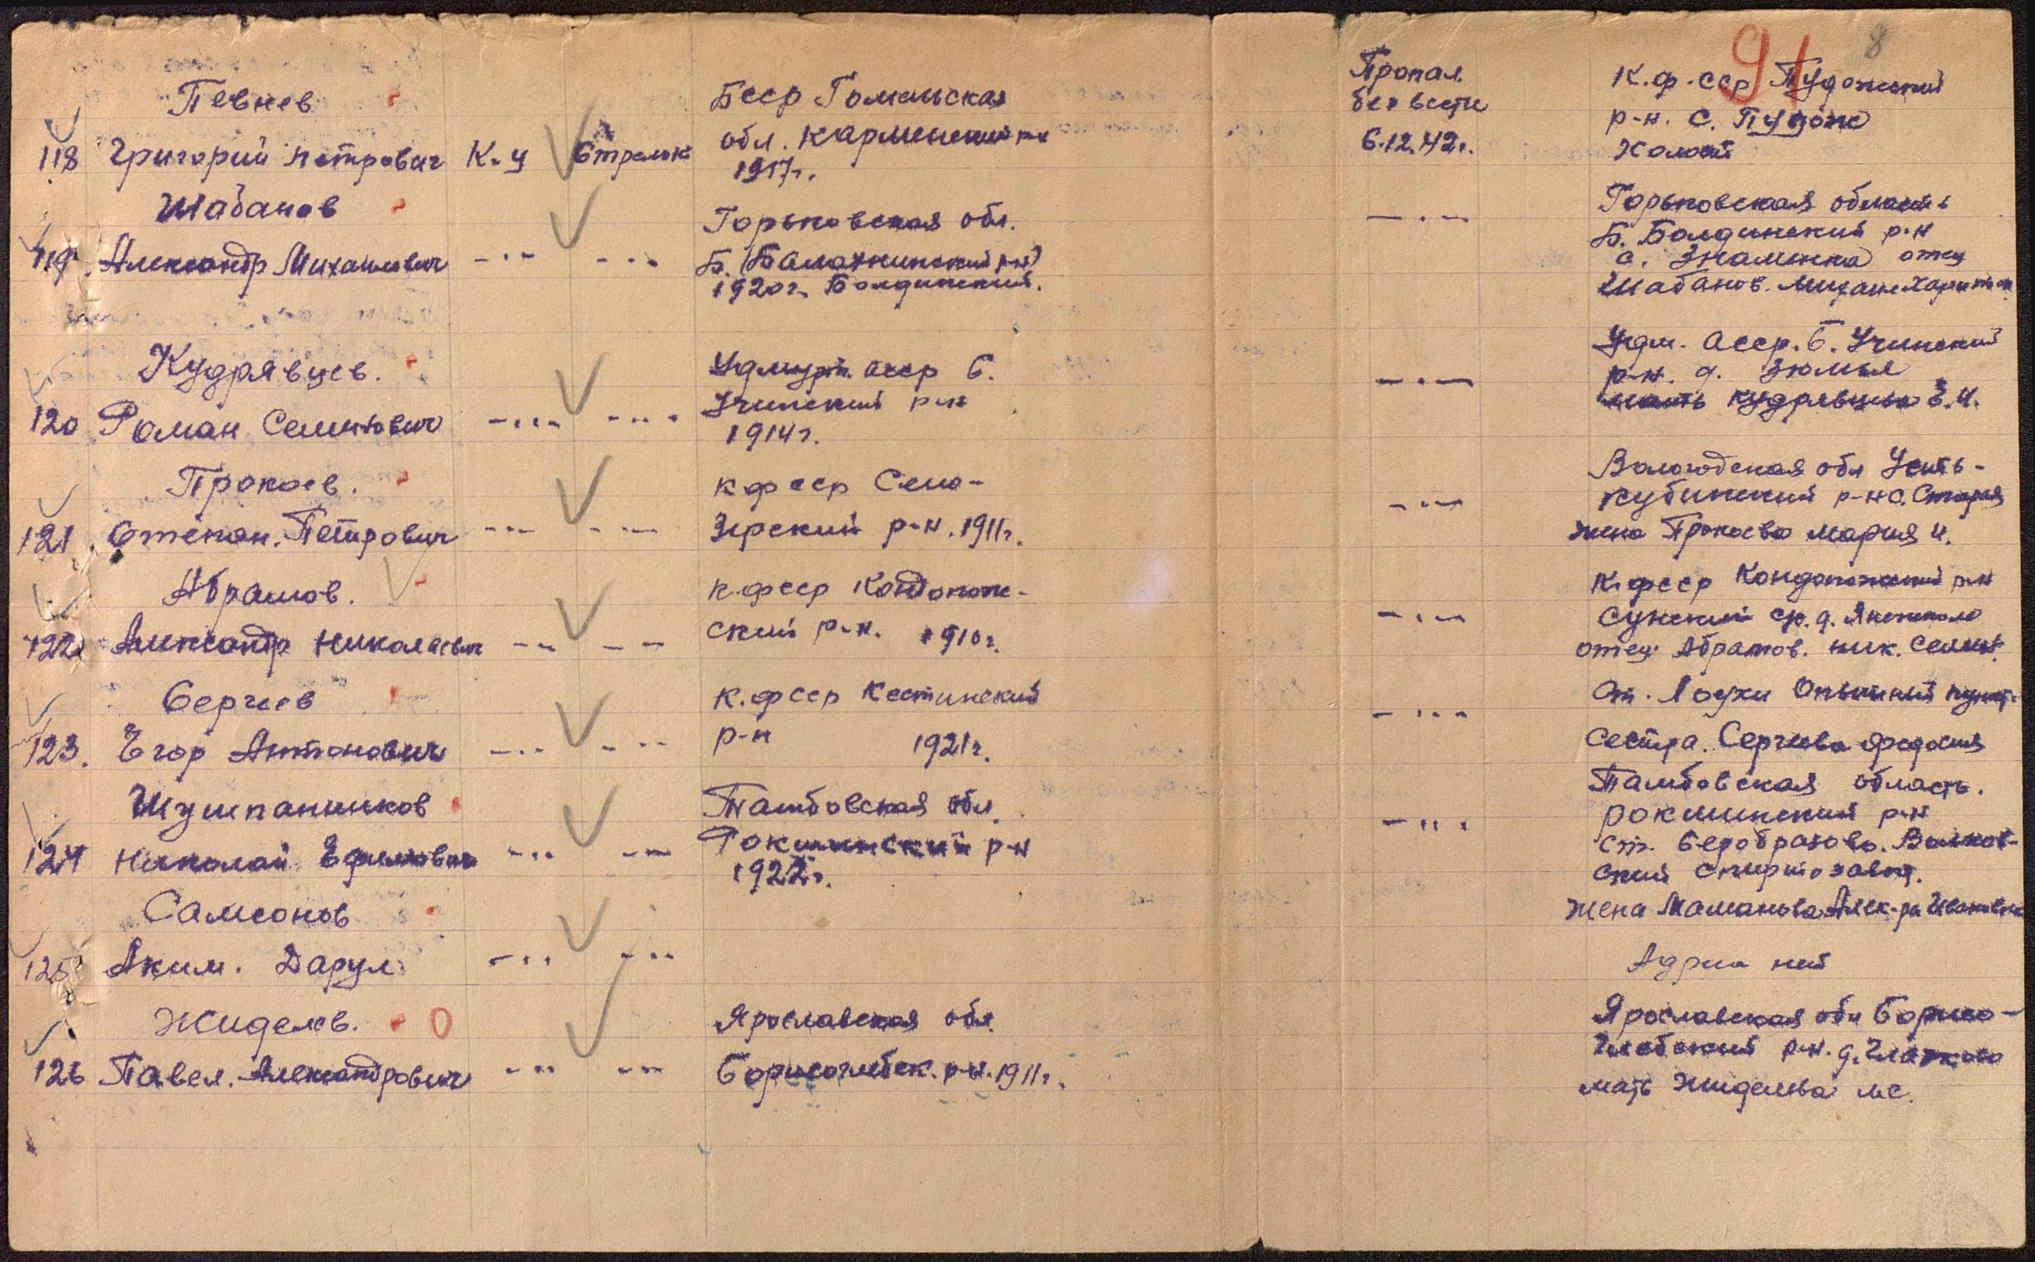 91 8
Певнев
118 Григорий Петрович К-ц Стрелок
Бсср Гомельская
обл. Карминский р-н
1917г.
Пропал
без вести
6.12.42г.
К.ф.сср Пудожский
р-н. с. Пудож
Холост
Шабанов
119. Александр Михайлович
Горьковская обл.
Б. (Балахнинский р-н)
1920г. Болдинский.
Горьковская область
Б. Болдинский р-н
с. Знаменка отец
Шабанов. Михаил
Кудрявцев.
120 Роман Семенович
Удмурт. асср Б.
Учинский р-н
1914г.
Удм. Асср. Б. Учинский
р-н. д.
мать Кудрявцева
Прокоев.
121. Степан. Петрович
К ф сср Сего-
зерский р-н. 1911г.
Вологодская обл Усть-
Кубинский р-н с. Старая
жена Прокоева Мария И.
Абрамов.
122 Александр Николаевич
К.фсср Кондопож-
ский р-н. 1910г.
К.фсср Кондопожский р-н
Сунский с/с. д.
отец Абрамов. Ник. Семен.
Сергеев
123. Егор Антонович
К.фсср Кестинский
р-н 1921г.
ст. Лоухи Опытный пункт.
сестра. Сергеева Федосия
Шушпанников
124 Николай Ефимович
Тамбовская обл.
Рокшинский р-н
1922г.
Тамбовская область.
Рокшинский р-н
ст. Сероброзово.
ский спиртозавод.
Самсонов
жена Малан Алек-ра Ивановна
125 Аким. Дарул
Адреса нет
Жиделев. О
126 Павел. Александрович
Ярославская обл.
Борисоглебск. р-н. 1911г.
Ярославская обл Борисо-
глебский р-н. д.
мать Жиделева